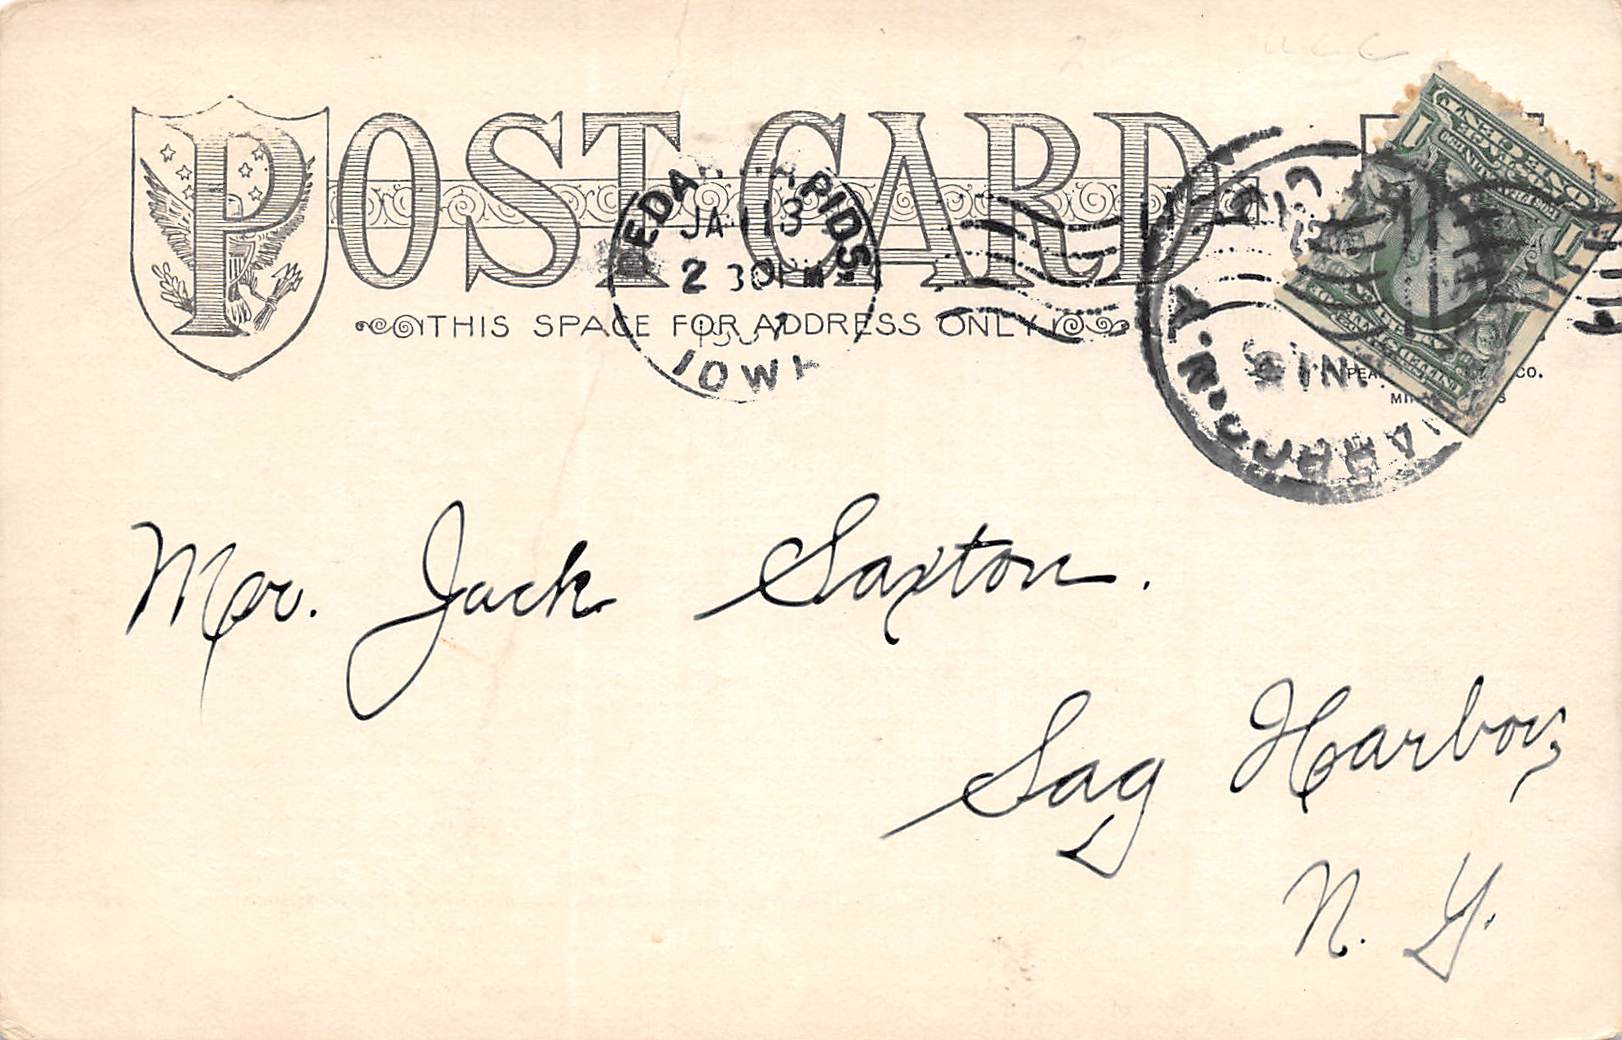 POST CARD
THIS SPACE FOR ADDRESS ONLY
CEDAR RAPIDS
JAN 13
2 30 PM
IOWA
HARBOR N.Y.
Mr. Jack Saxton.
Sag Harbor,
N. Y.